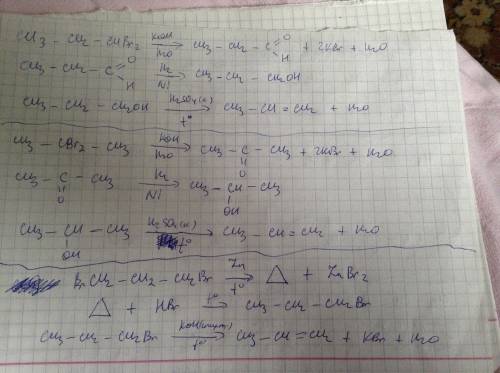 CH3 – CH2 – CHBr2 KOH/H2O → CH3 – CH2 – C(=O)H + 2KBr + H2O
CH3 – CH2 – C(=O)H H2/Ni → CH3 – CH2 – CH2OH
CH3 – CH2 – CH2OH H2SO4(к)/t° → CH3 – CH = CH2 + H2O
CH3 – CBr2 – CH3 KOH/H2O → CH3 – C(=O) – CH3 + 2KBr + H2O
CH3 – C(=O) – CH3 H2/Ni → CH3 – CH(OH) – CH3
CH3 – CH(OH) – CH3 H2SO4(к)/t° → CH3 – CH = CH2 + H2O
BrCH2 – CH2 – CH2Br Zn/t° → △ + ZnBr2
△ + HBr t° → CH3 – CH2 – CH2Br
CH3 – CH2 – CH2Br KOH(спирт)/t° → CH3 – CH = CH2 + KBr + H2O